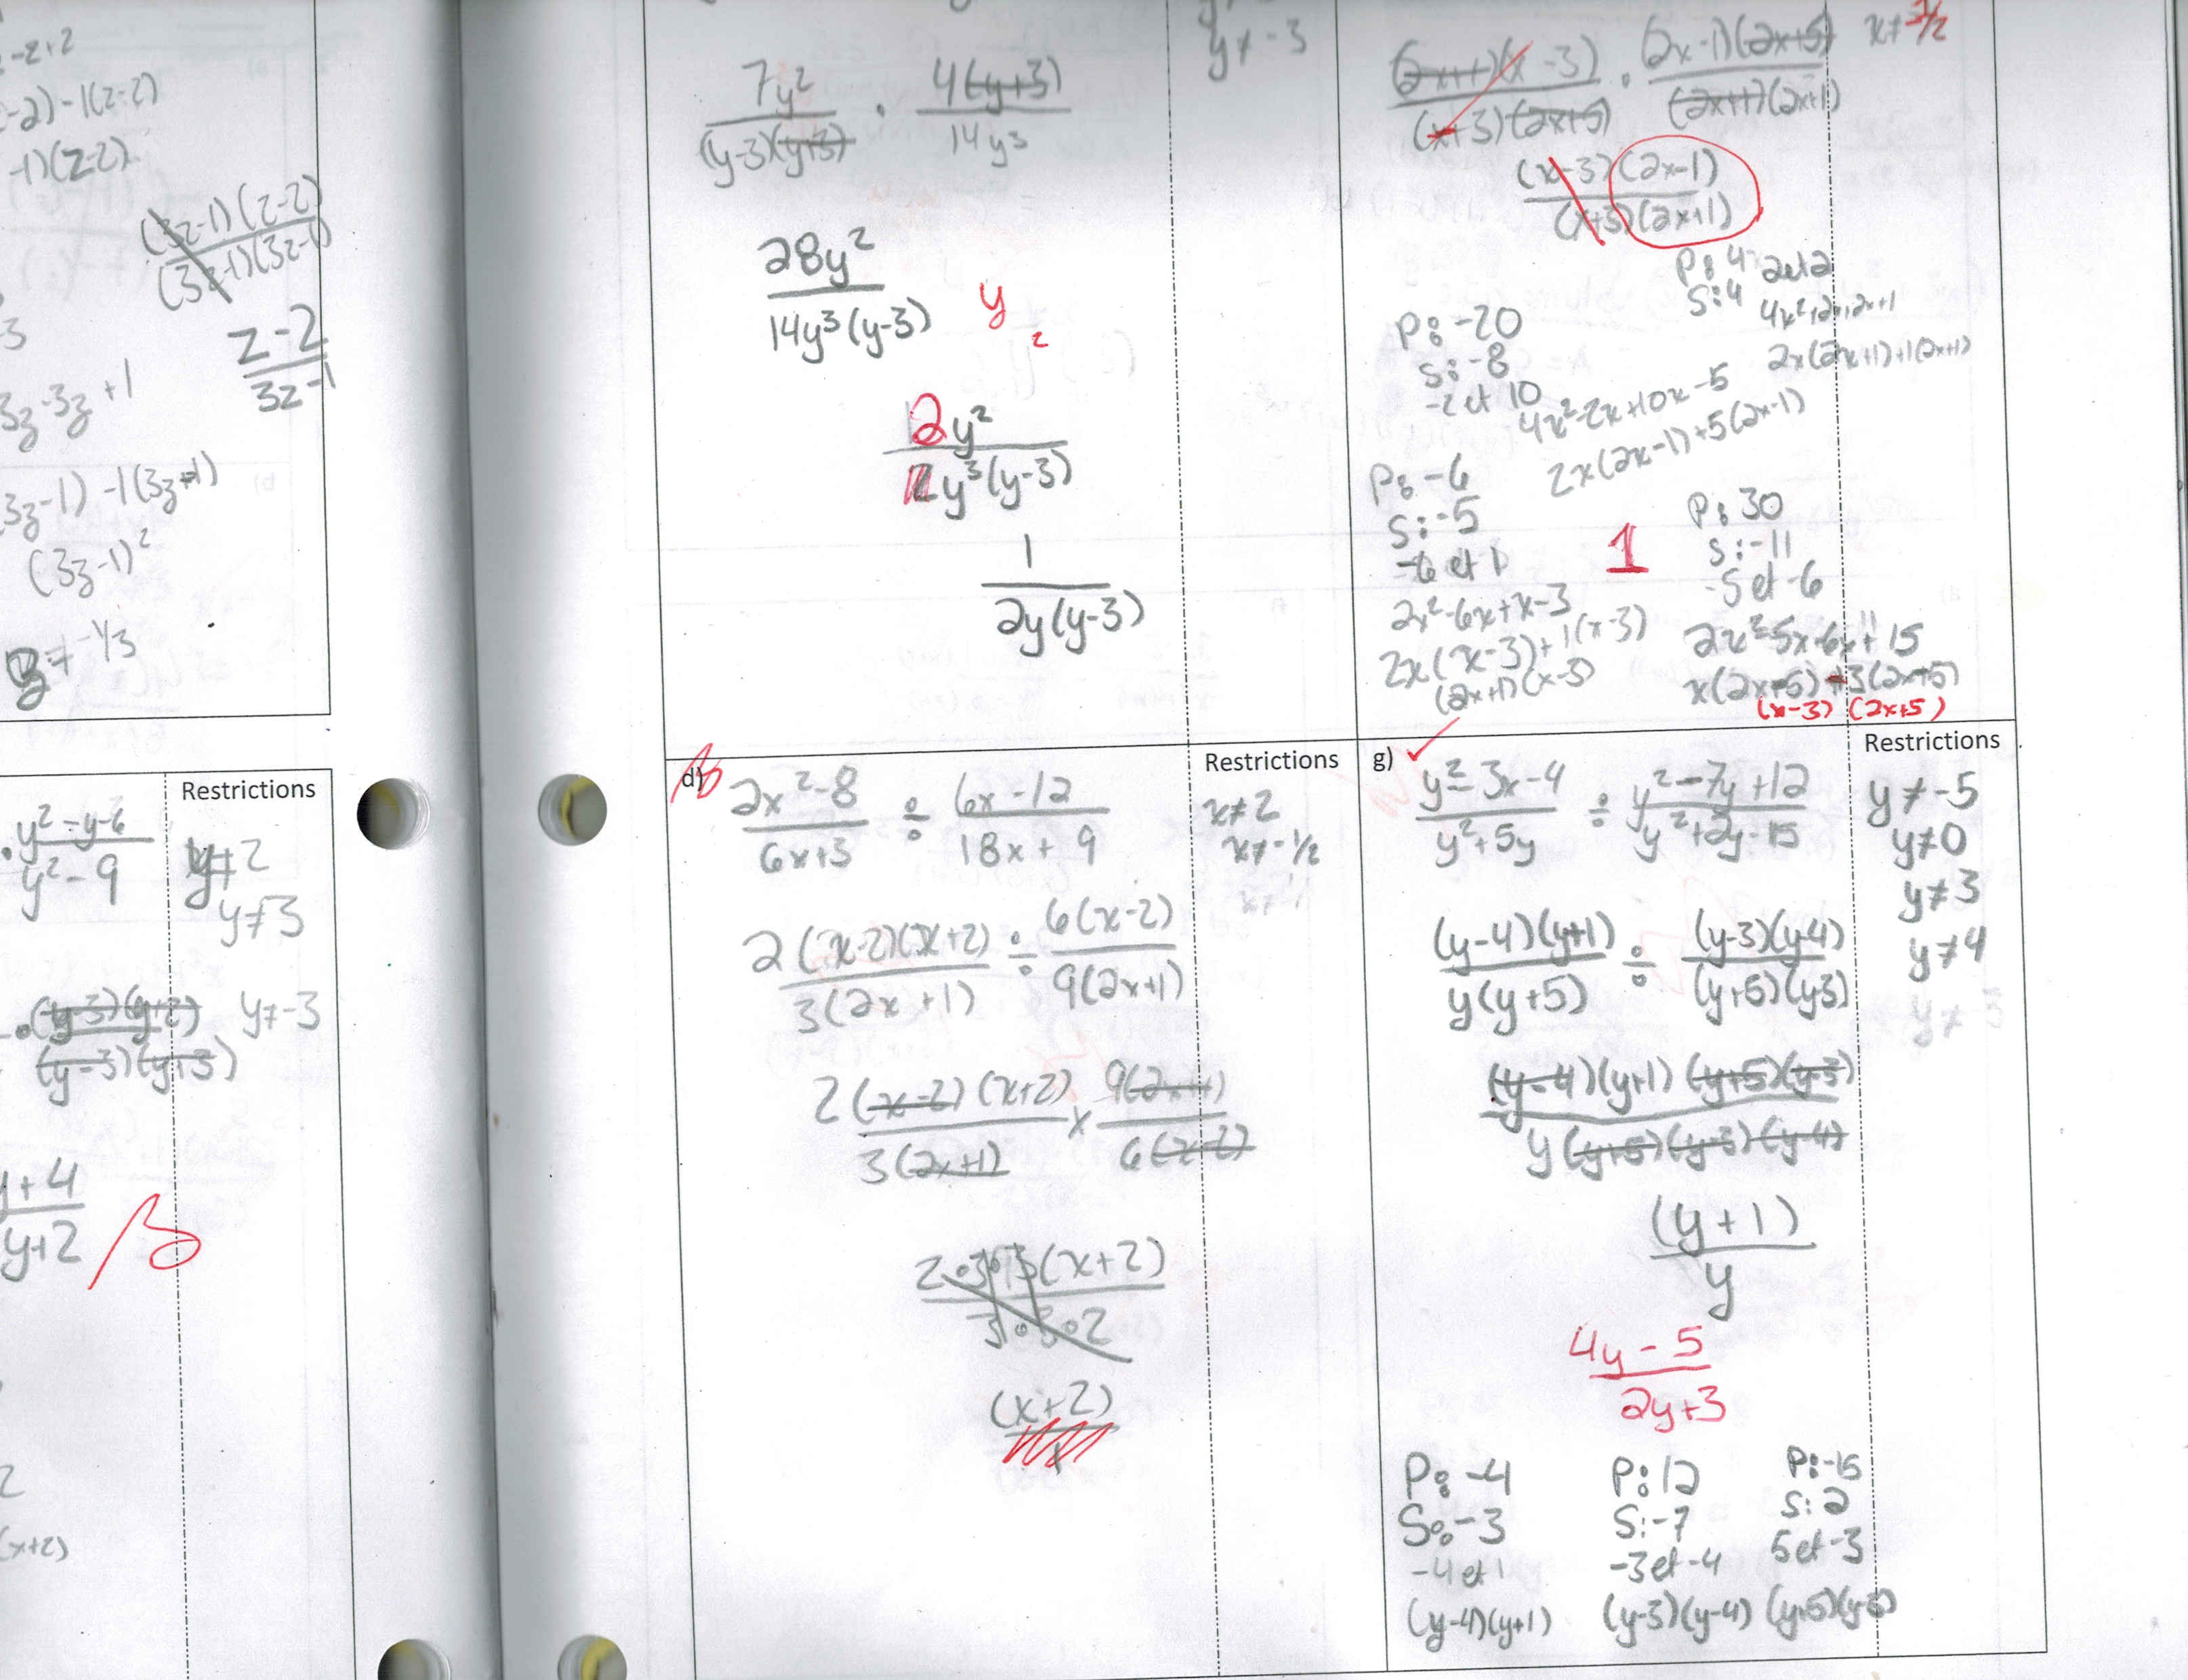 -z+2
-2) -1(z-2)
-1)(z-2)
(3z-1)(z-2)
(3z-1)(3z-1)
z-2
3z-1
3z-3z+1
3z-1) -1(3z-1)
(3z-1)²
z≠ -1/3
Restrictions
y²-y-6
y²-9
y≠2
y≠3
(y-3)(y+2)
(y-3)(y+3)
y≠-3
y+4
y+2
(x+2)
y≠-3
7y² · 4(y+3)
(y-3)(y+3) 14y³
28y²
14y³(y-3)
y
2
2y²
y³(y-3)
1
2y(y-3)
(2x+1)(x-3) · (2x-1)(2x+5)
(x+3)(2x+5) (2x+1)(2x+1)
x≠ -1/2
(x-3)(2x-1)
(x+3)(2x+1)
P: 4 2et2
S: 4
4x²+2x+2x+1
2x(2x+1)+1(2x+1)
P: -20
S: -8
-2 et 10
4x²-2x+10x-5
2x(2x-1)+5(2x-1)
P: -6
S: -5
-6 et 1
2x²-6x+x-3
2x(x-3)+1(x-3)
(2x+1)(x-3)
1
P: 30
S: -11
-5 et -6
2x²-5x-6x+15
x(2x-5)-3(2x+5)
(x-3) (2x+5)
d)
2x²-8 ÷ 6x-12
6x+3 18x+9
Restrictions
x≠2
x≠-1/2
2(x-2)(x+2) ÷ 6(x-2)
3(2x+1) 9(2x+1)
2(x-2)(x+2) x 9(2x+1)
3(2x+1) 6(x-2)
2·3·3(x+2)
3·3·2
(x+2)
1
g)
y²-3x-4 ÷ y²-7y+12
y²+5y y²+2y-15
Restrictions
y≠-5
y≠0
y≠3
y≠4
(y-4)(y+1) ÷ (y-3)(y-4)
y(y+5) (y+5)(y-3)
(y-4)(y+1)(y+5)(y-3)
y(y+5)(y-3)(y-4)
(y+1)
y
4y-5
2y+3
P: -4
S: -3
-4 et 1
(y-4)(y+1)
P: 12
S: -7
-3 et -4
(y-3)(y-4)
P: -15
S: 2
5 et -3
(y+5)(y-3)